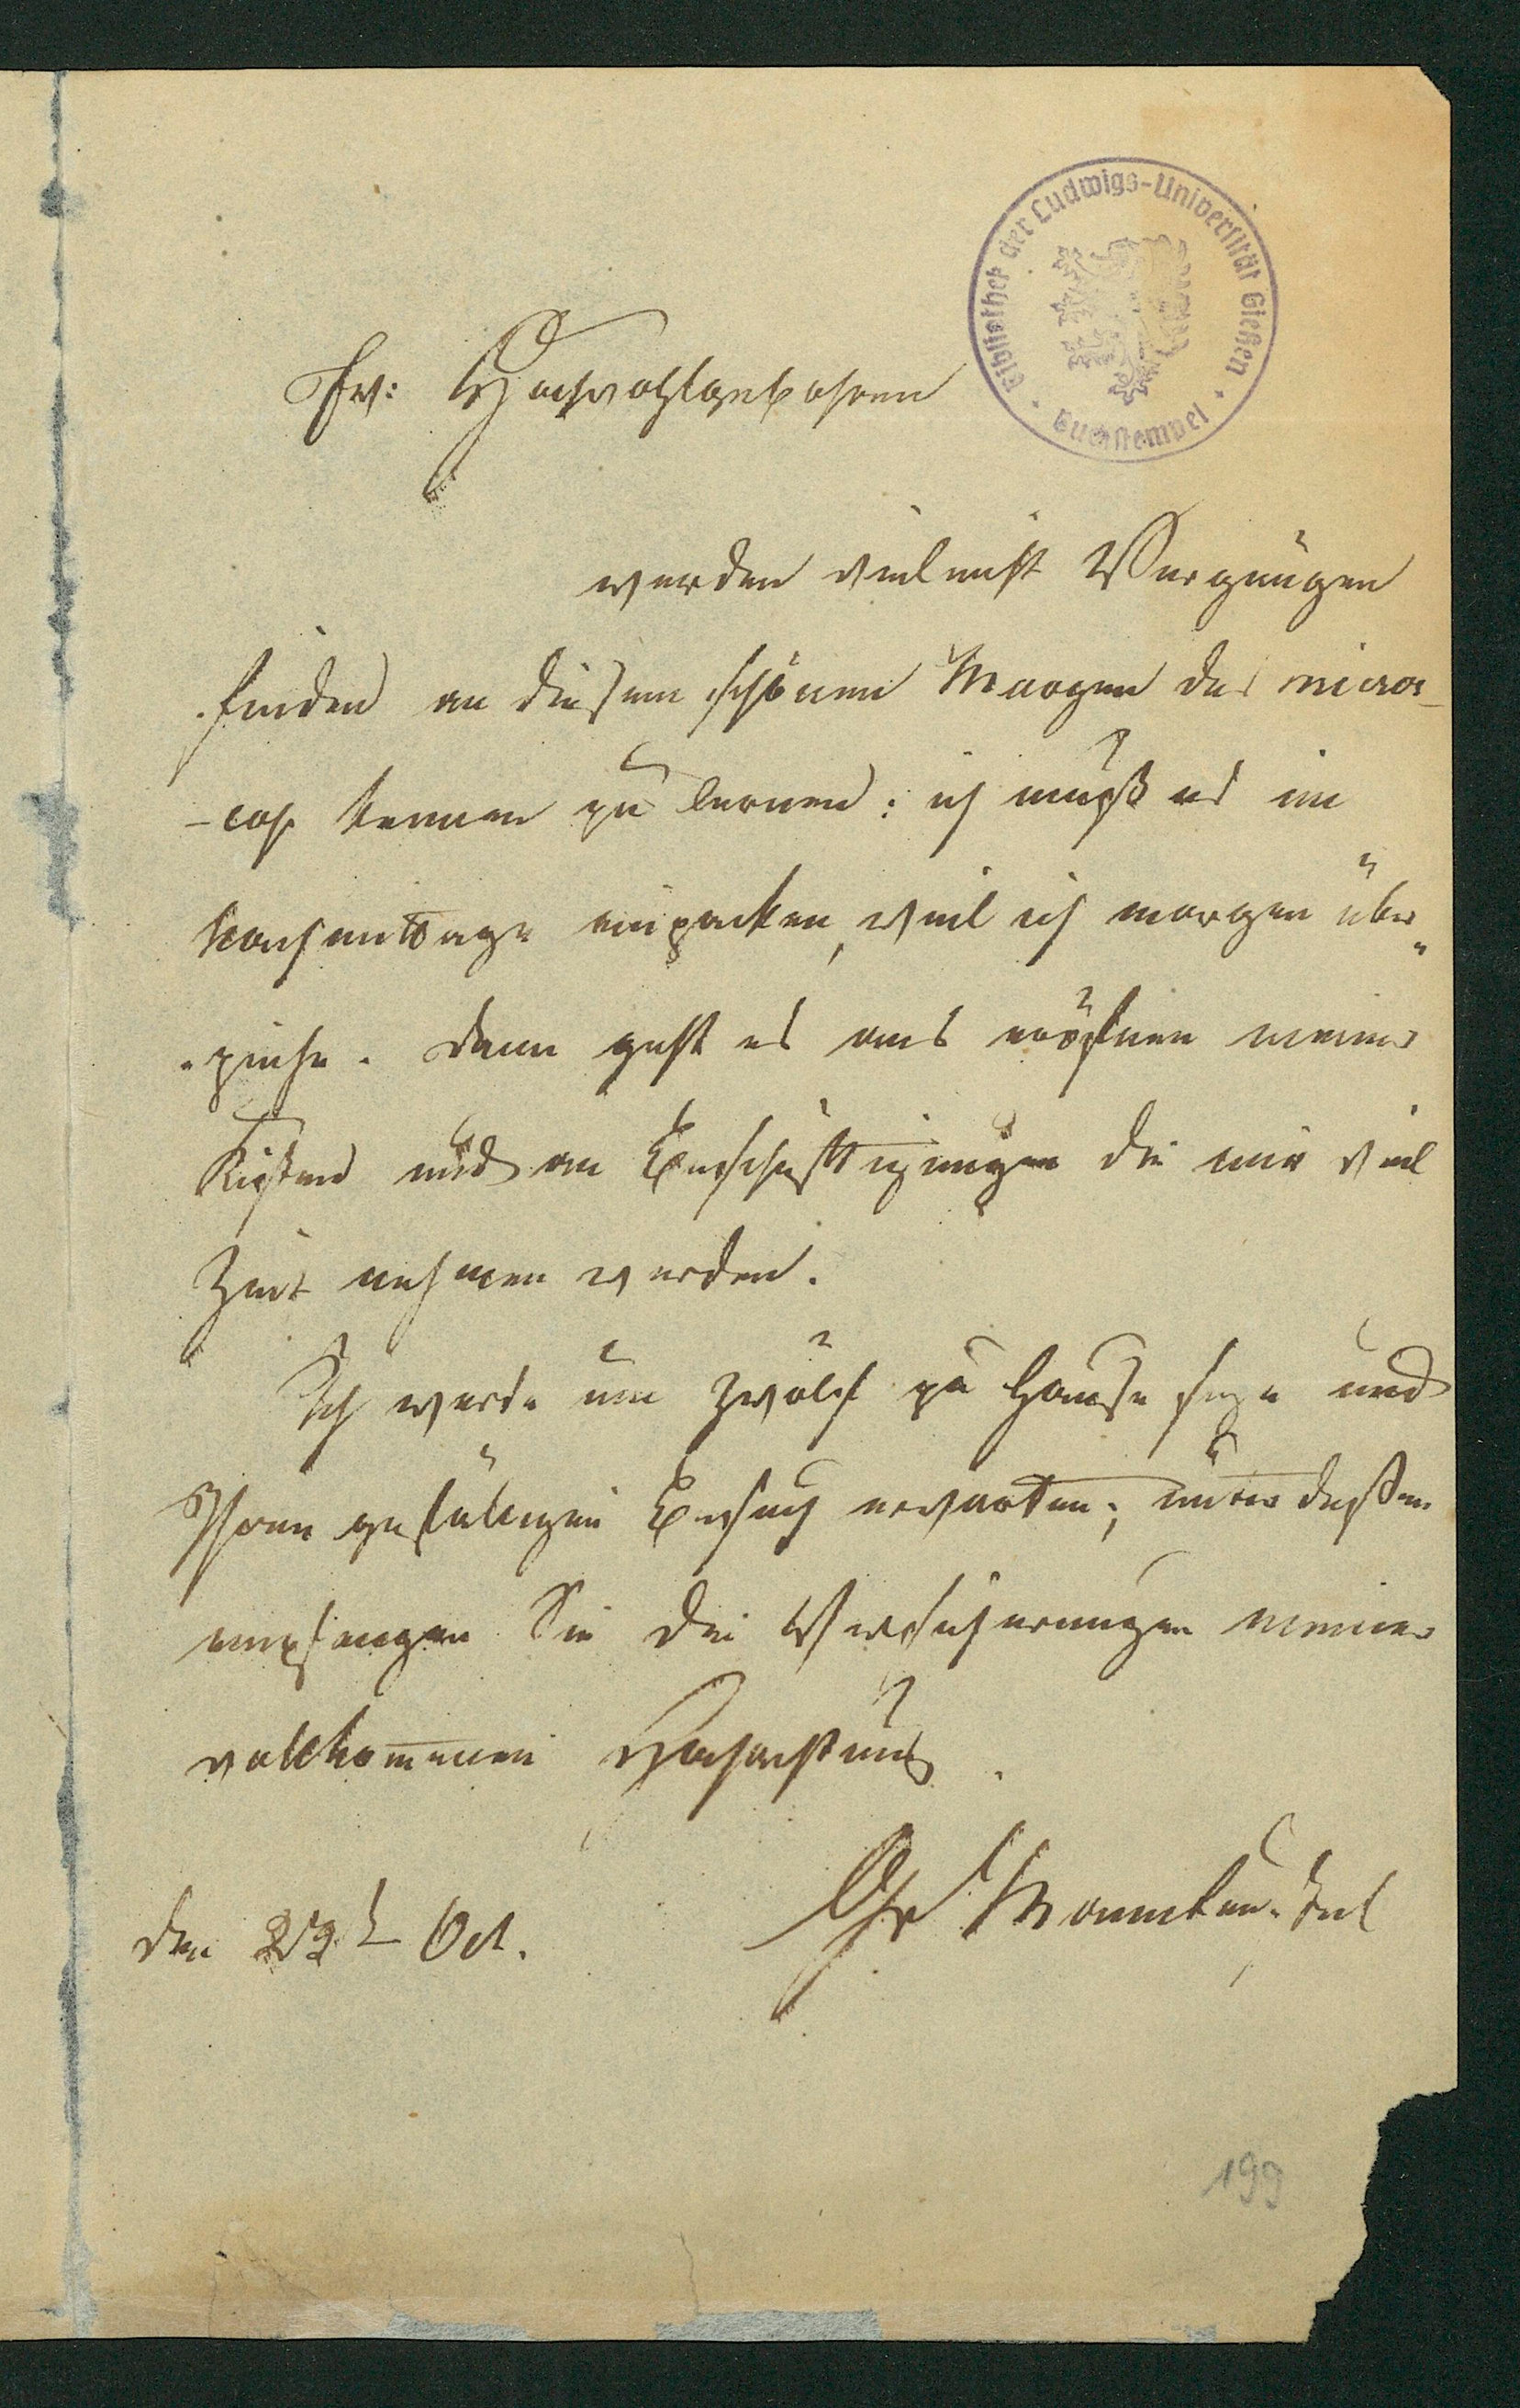 Bibliothek der Ludwigs-Universität Gießen
Buchstempel
Ew: Hochwohlgebohren
werden vielleicht Vergnügen
finden an diesem schönen Morgen das micros-
-cop kennen zu lernen: ich muß es im
Nachmittage einpacken, weil ich morgen über
ziehe. Dann geht es ans eröfnen meiner
Kisten und an Beschäftigungen die mir viel
Zeit nehmen werden.
Ich werde um zwölf zu Hause seyn und
Ihren gefälligen Besuch erwarten; unterdeßen
empfangen Sie die Versicherungen meiner
vollkommenen Hochachtung.
den 23t Oct.
199